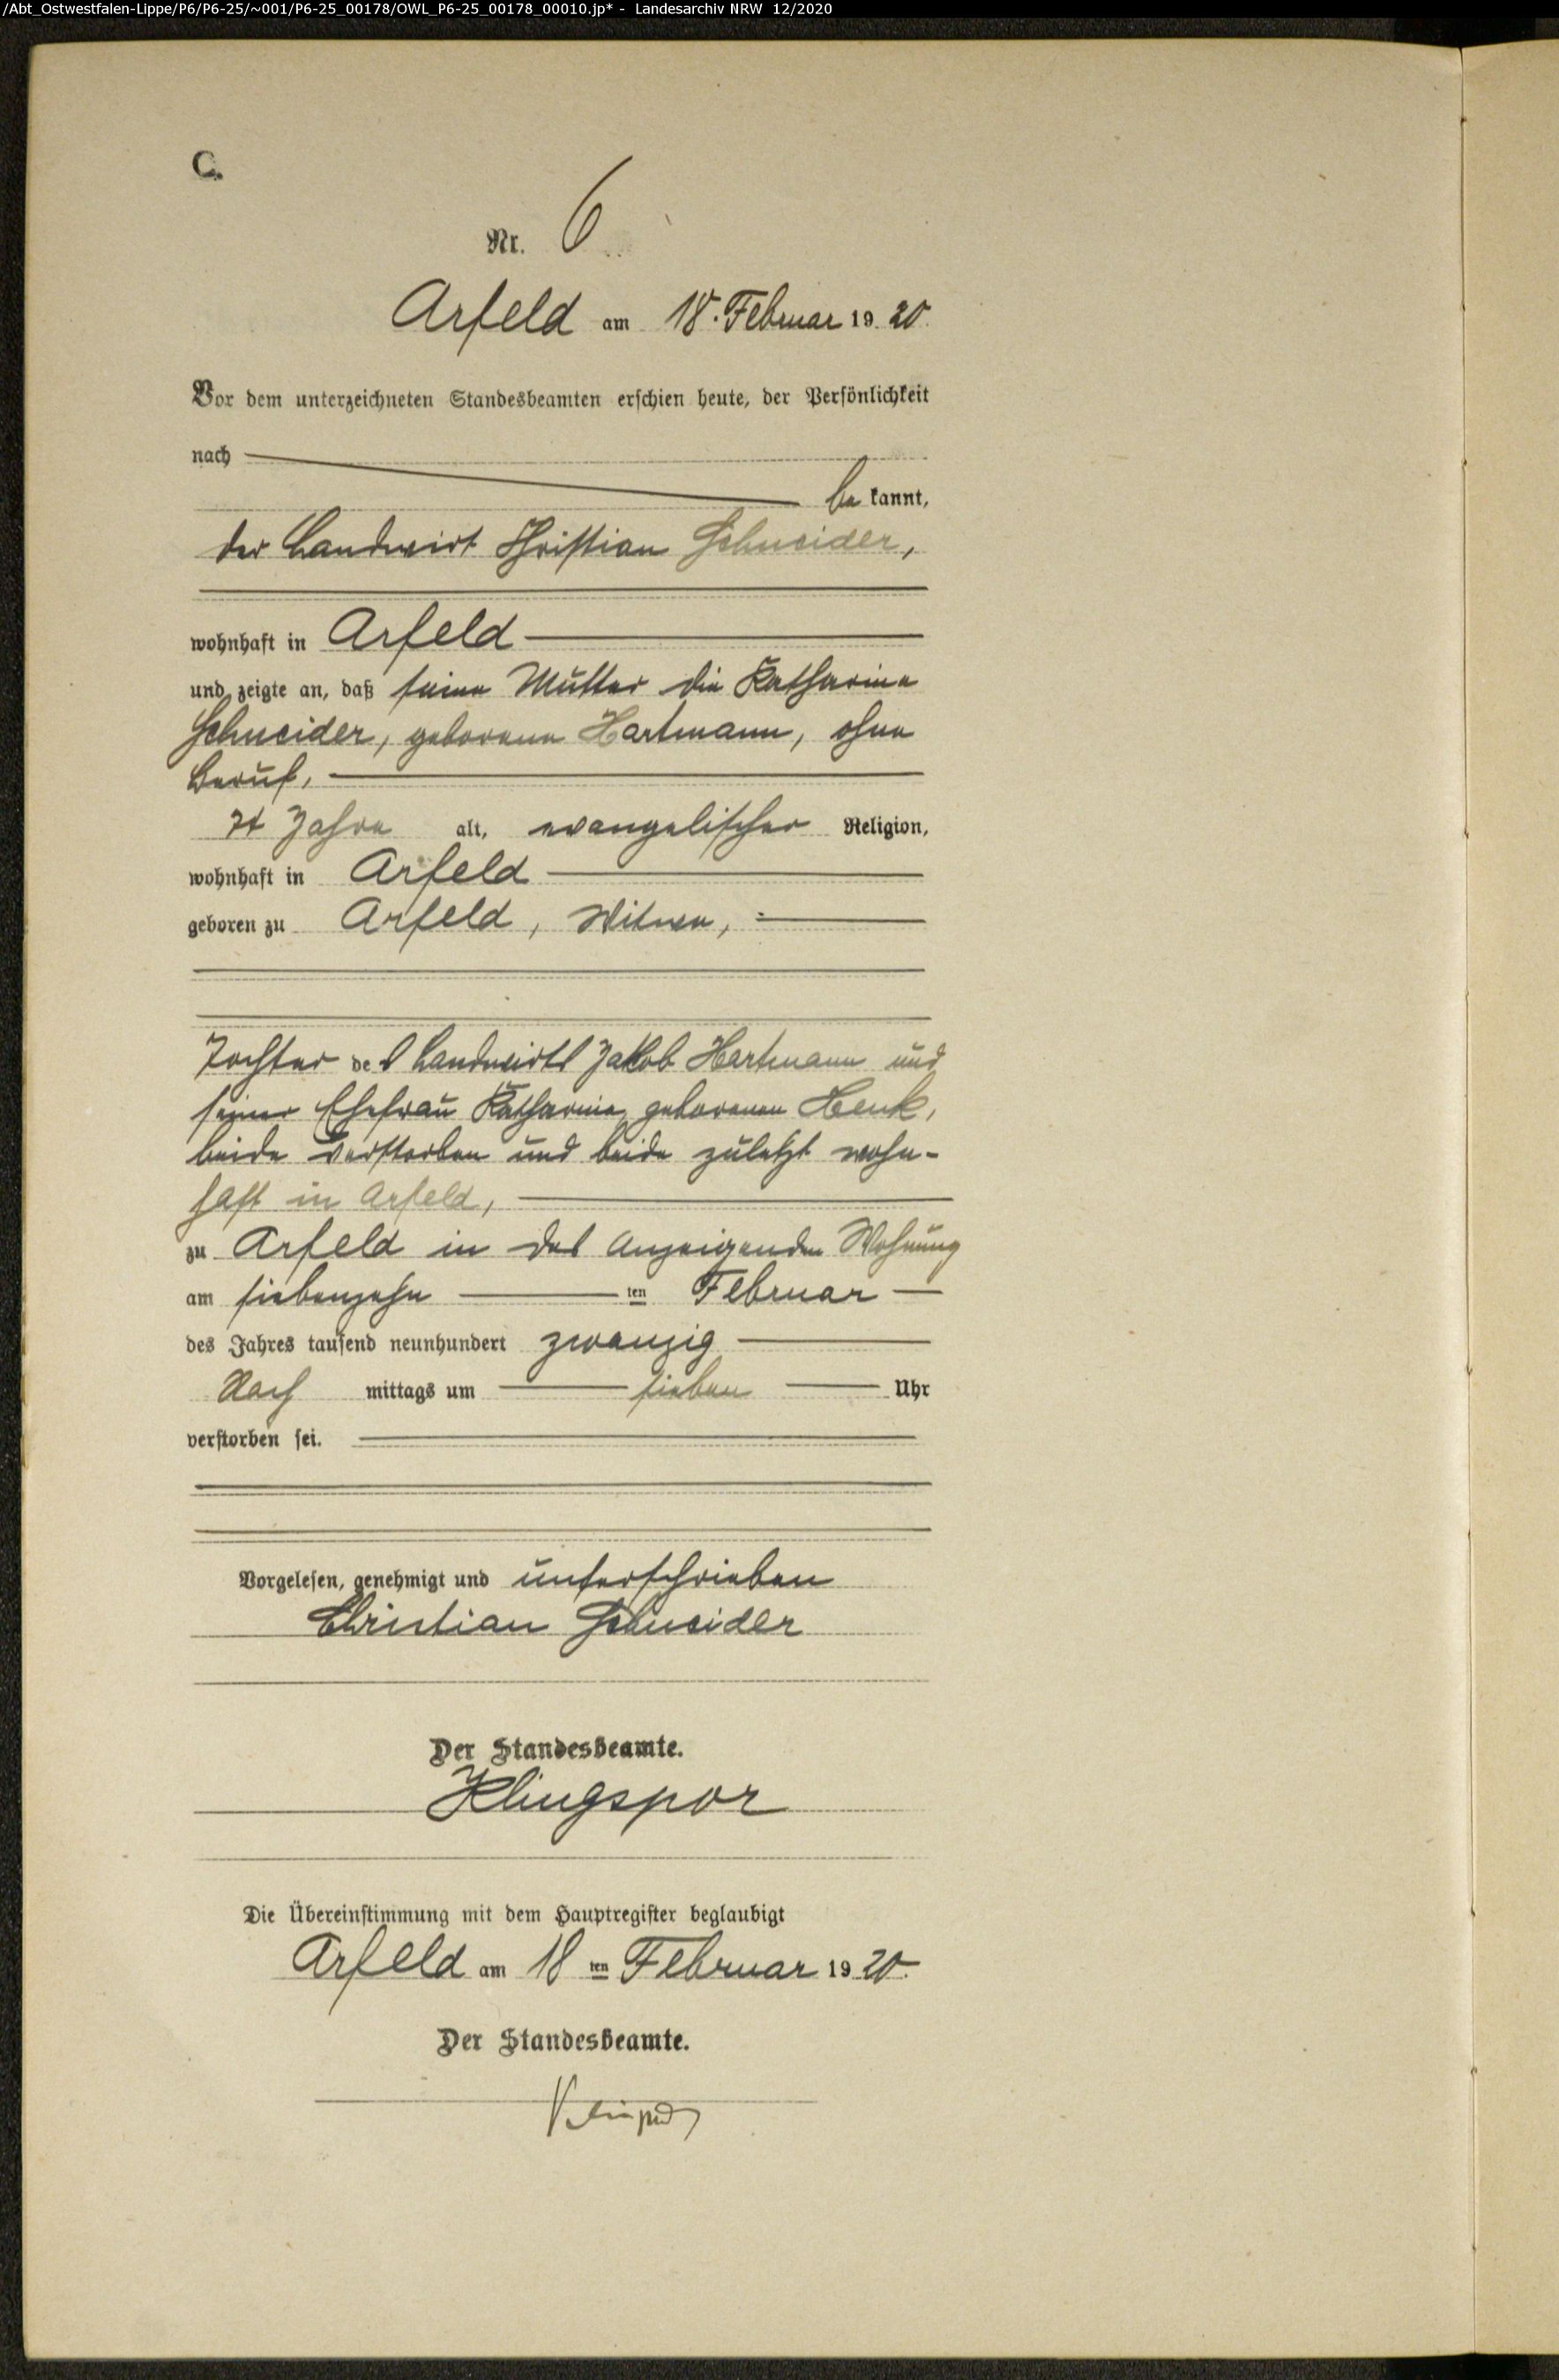 /Abt_Ostwestfalen-Lippe/P6/P6-25/~001/P6-25_00178/OWL_P6-25_00178_00010.jp* - Landesarchiv NRW 12/2020
C.
Nr. 6
Arfeld am 18. Februar 1920.
Vor dem unterzeichneten Standesbeamten erschien heute, der Persönlichkeit
nach
be kannt,
der Landwirt Christian Schneider,
wohnhaft in Arfeld
und zeigte an, daß seine Mutter die Katharina
Schneider, geborene Hartmann, ohne
Beruf,
Jahre alt, evangelischer Religion,
wohnhaft in Arfeld
geboren zu Arfeld, Witwe,
Tochter des Landwirts Jakob Hartmann und
seiner Ehefrau Katharina, geborenen Henk,
beide verstorben und beide zuletzt wohn-
haft in Arfeld,
zu Arfeld in des Anzeigenden Wohnung
am siebenzehn ten Februar
des Jahres tausend neunhundert zwanzig
Nach mittags um sieben Uhr
verstorben sei.
Vorgelesen, genehmigt und unterschrieben
Christian Schneider
Der Standesbeamte.
Klingspor
Die Übereinstimmung mit dem Hauptregister beglaubigt
Arfeld am 18 ten Februar 1920.
Der Standesbeamte.
Klingspor